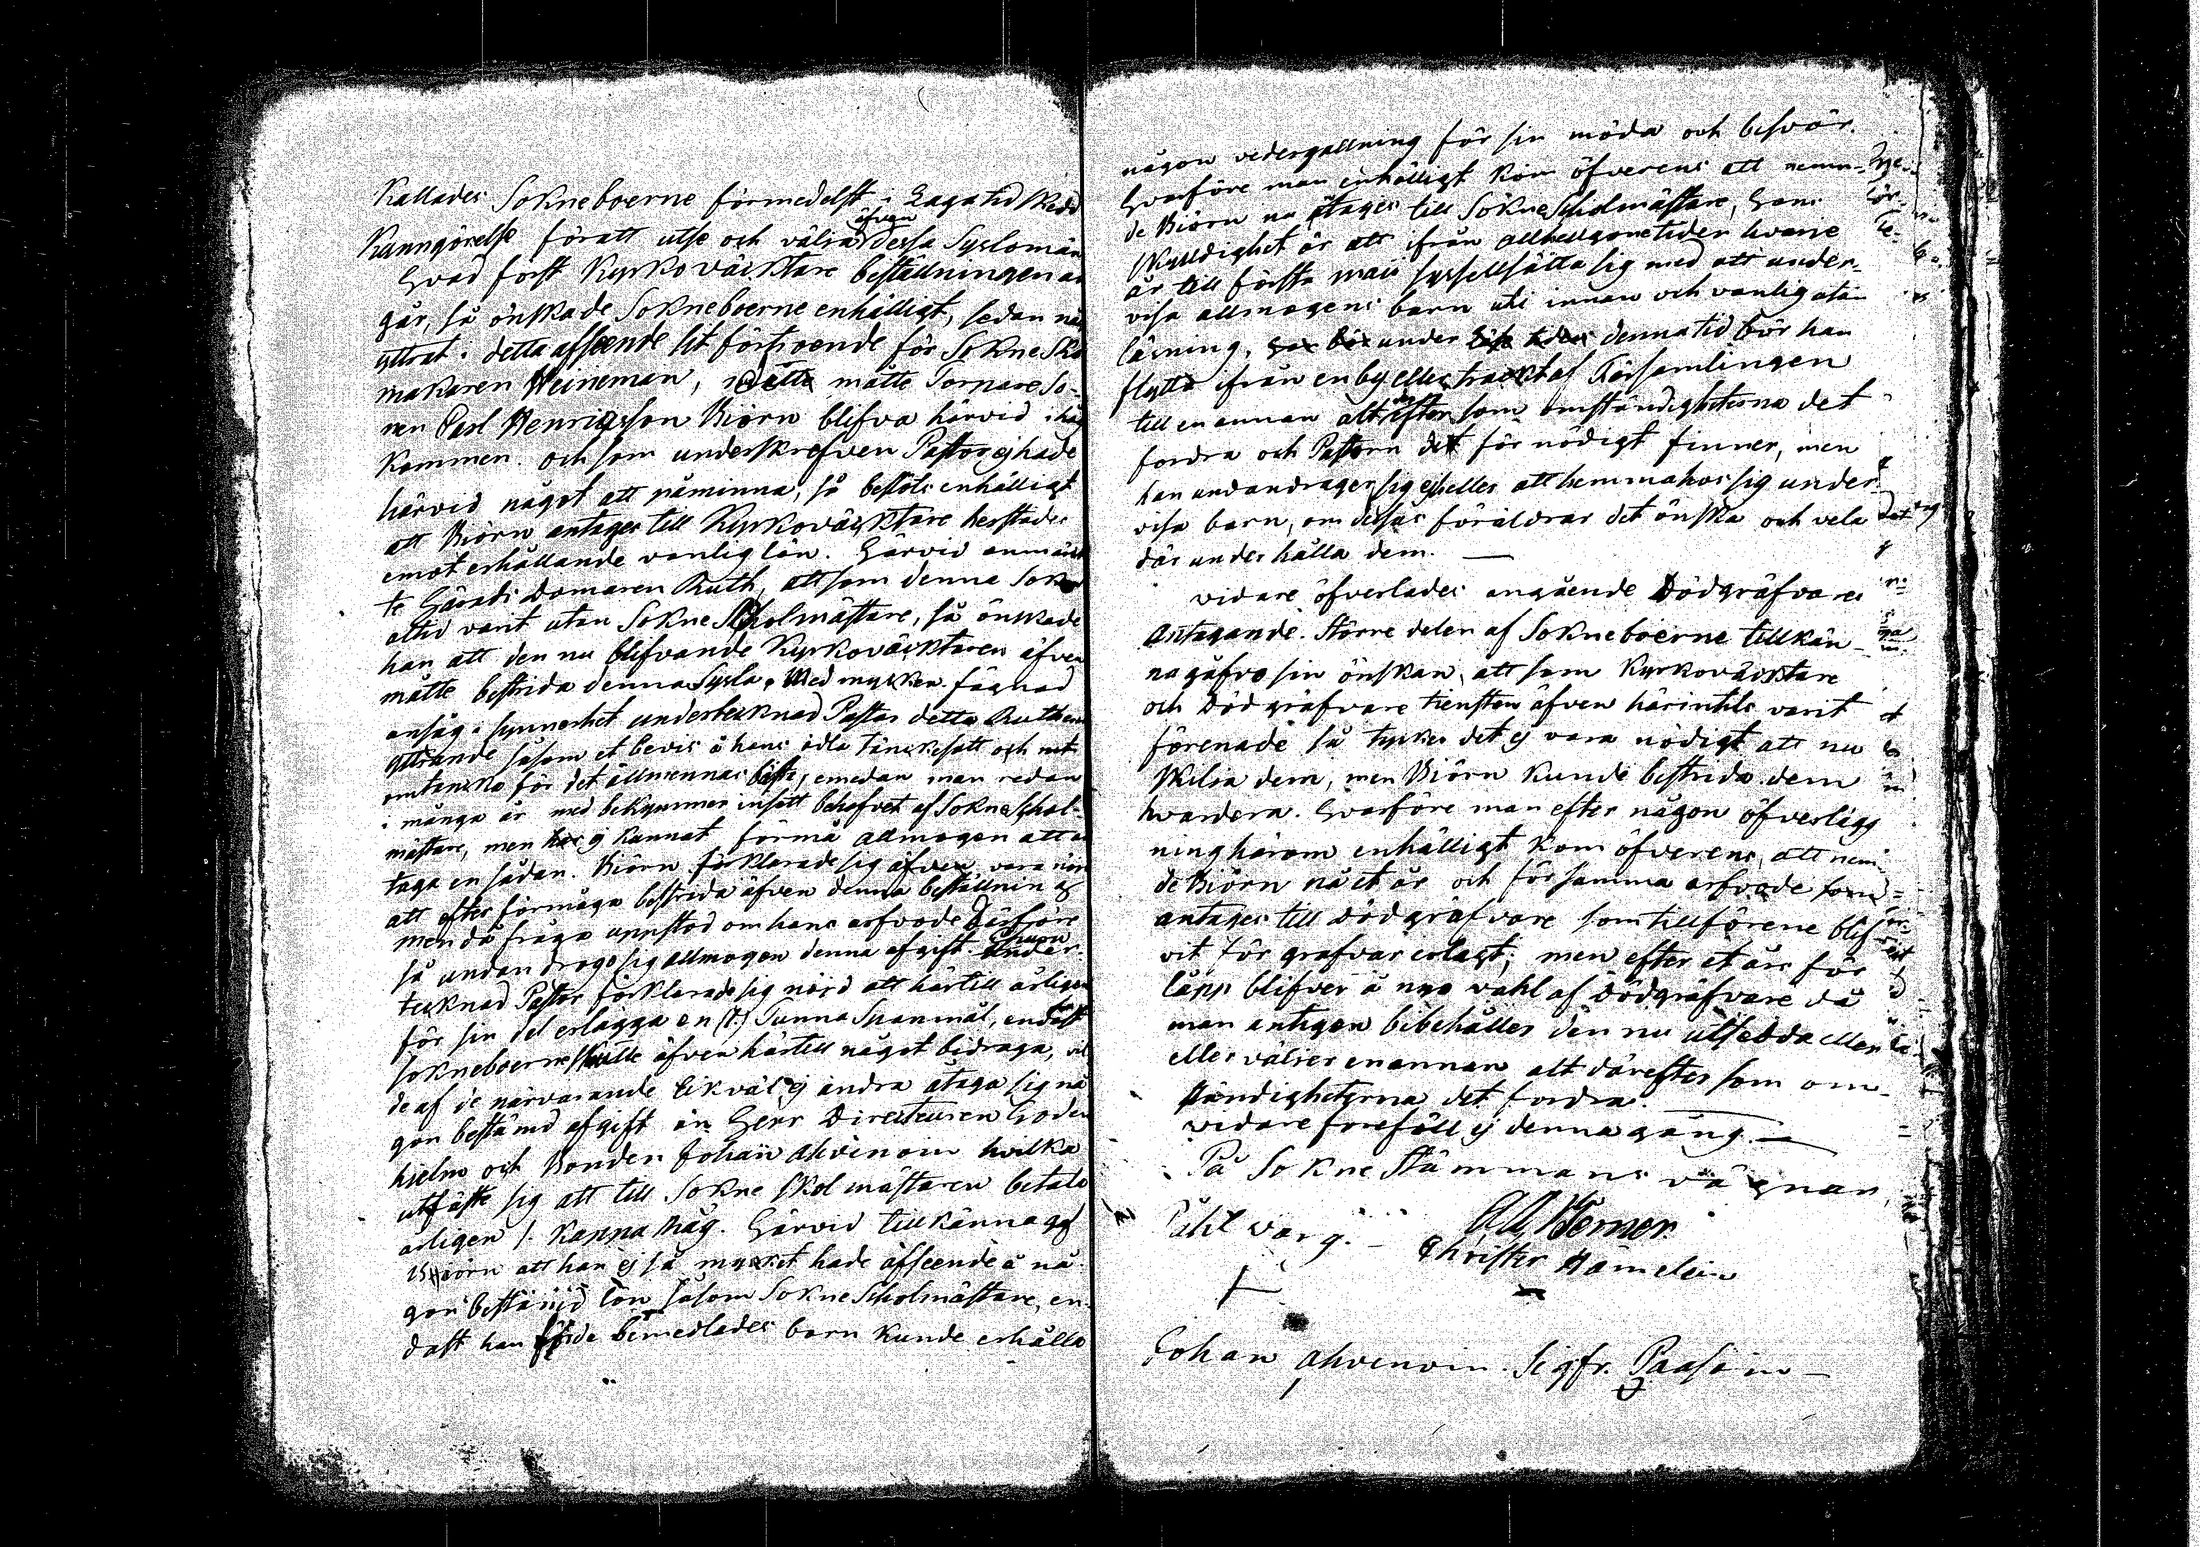 Kallades Sokneboerne förmedelst i Laga tid skedd
Kunngörelse föratt utse och välia äfven dessa Syslomän
Hvad först Kyrkoväcktare beställningen an
går, så önskade Sokneboerne enhälligt, sedan når
yttrat i detta afseende sit förtroende för Sokne Sko
makaren Heineman, måtte Torpare So-
nen Carl Henricsson Biörn blifva härvid i håg
kommen. och som underskrefven Pastor ej hade
härvid något att påminna, så beslöts enhälligt
att Biörn antages till Kyrkoväcktare härstädes
emot erhållande vanlig lön. Härvid anmärk
te Härads Domaren Ruth, att som denna Sokn
altid varit utan Sokne Scholmästare, så önskade
han att den nu blifvande Kyrkovärcktaren äfven
måtte bestrida denna Sysla. Med mycken fägnad
ansåg i synnerhet undertecknad Pastor detta Ruthens
yttrande såsom et bevis å hans ädla tänckesätt och nit
omtencka för det allmennas bästa, emedan man redan
i många år med bekymmer insett behofvet af Sokne Schol-
mästare, men ej kunnat förmå allmogen att an
taga en sådan. Biörn förklarade sig äfven vara nöjd
att efter förmåga bestrida äfven denna beställning
men då fråga uppstod om hans arfvode därföre
så undandrogo sig allmogen denna afgift. Ehuru under-
tecknad Pastor förklarade sig nöjd att härtill årligen
för sin del erlägga en (1.) Tunna Spanmål, endast
sokneboerne skulle äfven härtill något bidraga, vil
de af de närvarande likväl ej andra åtaga sig nå
gon bestämd afgift än Herr Directeuren Lode
hielm och Bonden Johan Ahvenoin hvilka
utfäste sig att till Sokne Skolmästaren betala
årligen 1. Kappa Råg. Härvid tillkännagaf
Biörn att han ej så mycket hade afseende å nå
gon bestämd lön såsom Sokne Scholmästare, en-
dast han af de bemedlades barn kunde erhålla
någon vedergällning för sin möda och besvär.
Hvarföre man enhälligt kom öfverens att nemn-
de Biörn nu åtages till Sokne Scholmästare, Hans
skylldighet är att ifrån allhelgonatiden hvarje
år till första maii sysselsätta sig med att under-
visa allmogens barn uti innan och vanlig utan
läsning, under denna tid bör han
flytta ifrån en by eller tract af Församlingen
till en annan alt eftersom omständigheterna det
fordra och Pastorn det för nödigt finner, men
han undandrager sig ej heller att hemma hos sig under
visa barn, om dessas föräldrar det önska och vela
där underhålla dem. —
vidare öfverlades angående Dödgräfvares
antagande. Större delen af Sokneboerne tillkän-
nagåfvo sin önskan, att som Kyrkoväcktare
och Dödgräfvare tiensten äfven härintils varit
förenade så tyckes det ej vara nödigt att nu
skilia dem, men Biörn kunde bestrida dem
hvardera. Hvarföre man efter någon öfverlägg
ning härom enhälligt kom öfverens, att nem
de Biörn på et år och för samma arfvode som
antages till Dödgräfvare som tillförene blif
vit för grafvar erlagt; men efter et års för
låpp blifver å nyo vahl af Dödgräfvare då
man antigen bibehåller den nu utsedda eller
eller väljer en annan alt därefter som om-
ständigheterna det fordra.
vidare forefoll ej denna gång. —
På Sokne Stämmans vägnar
Pihl varg. — A A Werner
Christer Hämeläin
Johan Ahvenoin. Sigfr. Paasoin —